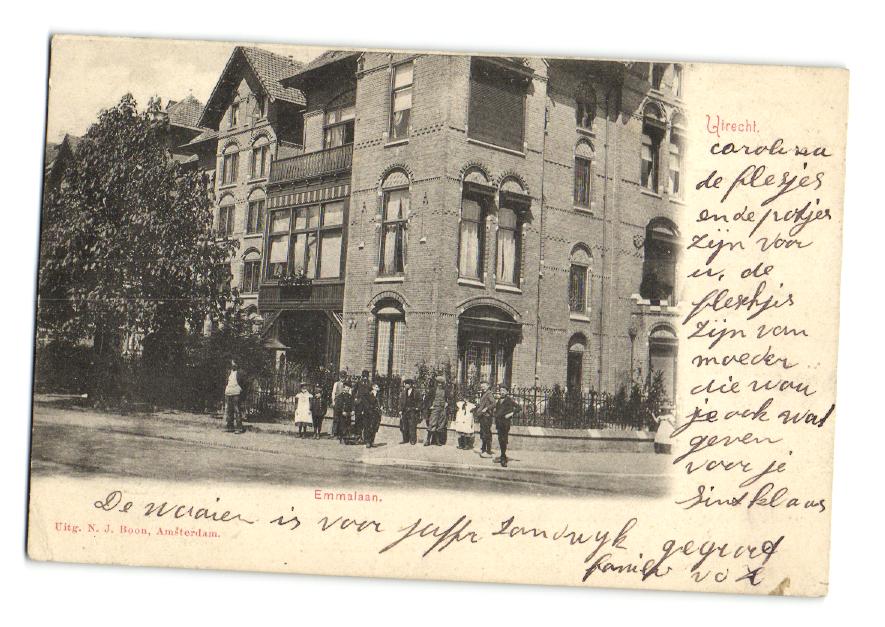 Utrecht.
carolina
de flesjes
en de potjes
zijn voor
u, de
fleshjis
zijn van
moeder
die wou
je ook wat
geven
voor je
Sintklaas
Emmalaan.
De waaier is voor juffr Zandwyk gegroet
Uitg. N. J. Boon, Amsterdam.
familie vox